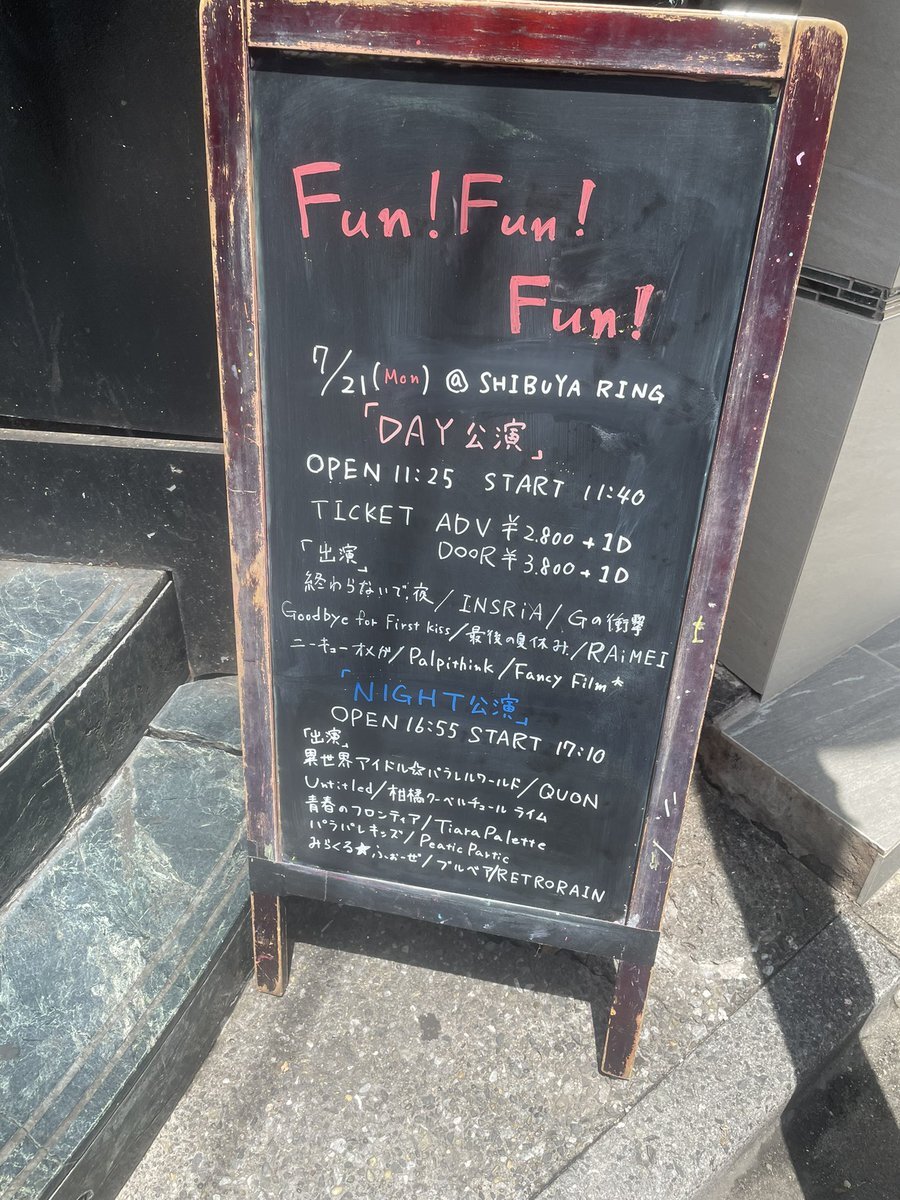 Fun! Fun!
Fun!
7/21(Mon) @ SHIBUYA RING
「DAY公演」
OPEN 11:25 START 11:40
TICKET ADV ¥2.800+1D
DOOR ¥3.800+1D
「出演」
終わらないで、夜/INSRiA/Gの衝撃
Goodbye for First kiss/最後の夏休み/RAiMEI
ニーキューオメガ/Palpithink/Fancy Film*
「NIGHT公演」
OPEN 16:55 START 17:10
「出演」
異世界アイドル☆パラレルワールド/QUON
Untitled/柑橘クーベルチュールライム
青春のフロンティア/TiaraPalette
パラパレキッズ/Peatic Partic
みらくる★ふぉーぜ/ブルベア/RETRORAIN